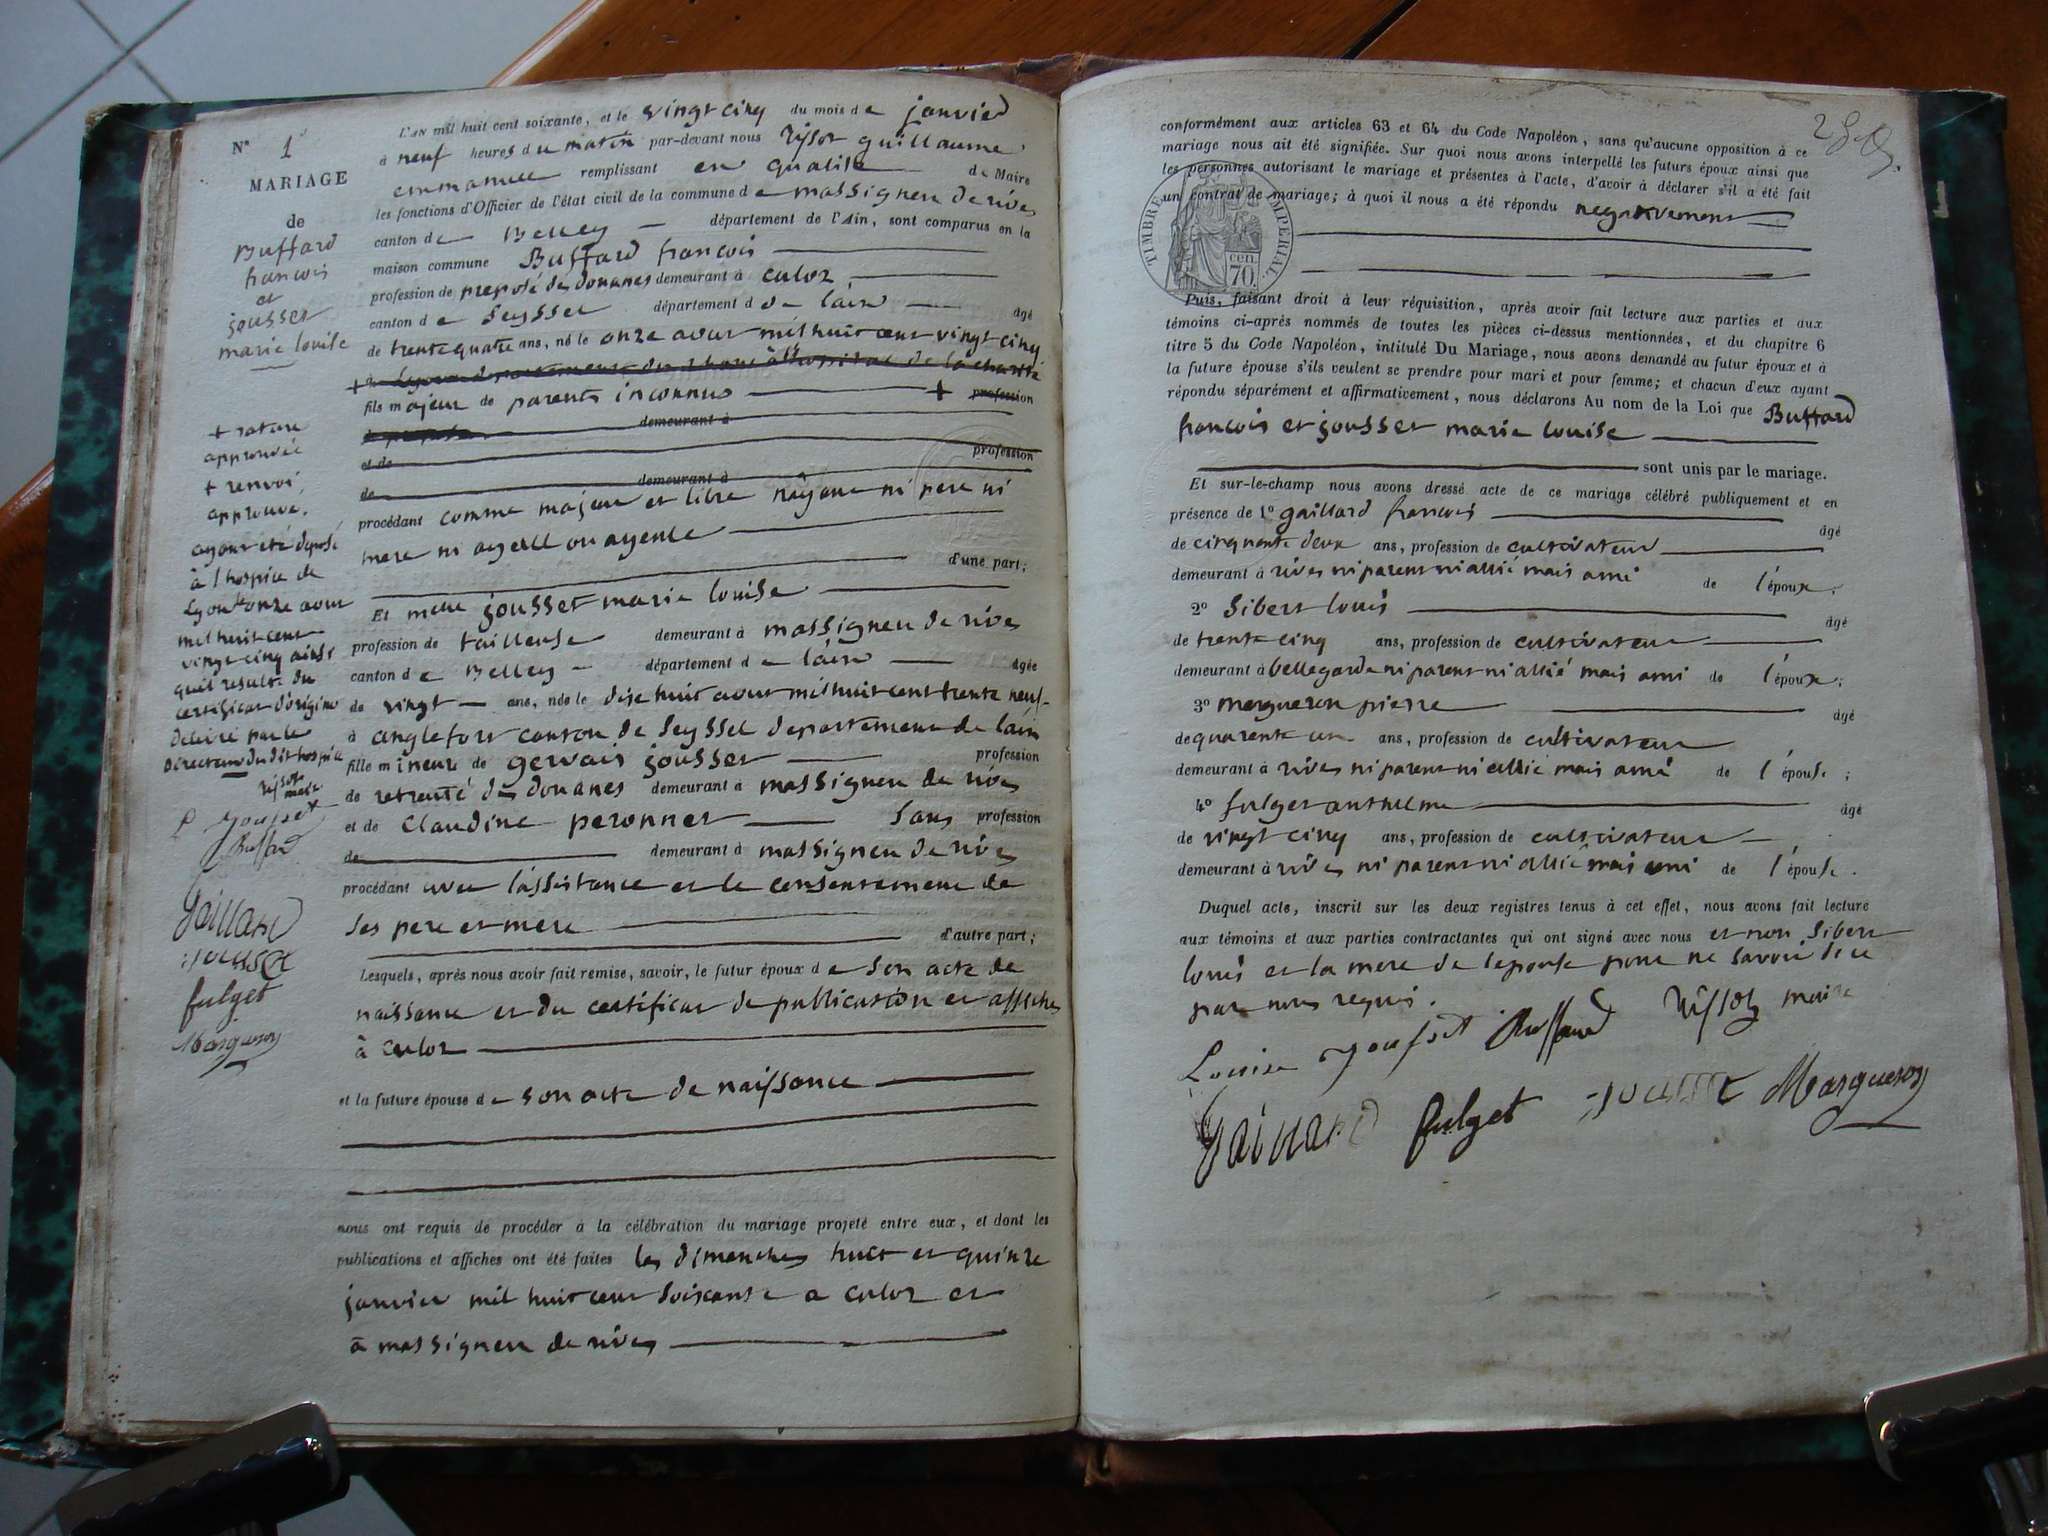 N° 1
MARIAGE
de
Buffard
francois
et
jousset
marie louise
L'AN mil huit cent soixante, et le vingt cinq du mois de janvier
à neuf heures du matin par-devant nous Rissot guillaume
emmanuel remplissant en qualité de Maire
les fonctions d'Officier de l'état civil de la commune de massigneu de rives
canton de Belley département de l'Ain, sont comparus en la
maison commune Buffard francois
profession de preposé des douanes demeurant à culoz
canton de Seyssel département de lain âgé
de trente quatre ans, né le onze aout mil huit cent vingt cinq
+ à Lyon departement du rhone à l'hospice de la charité
fils majeur de parents inconnus + profession
demeurant à
et de profession
de demeurant à
procédant comme majeur et libre nayant ni pere ni
mere ni ayeul ou ayeule
d'une part;
Et melle jousset marie louise
profession de tailleuse demeurant à massigneu de rives
canton de Belley département de lain âgée
de vingt ans, née le dixe huit aout mil huit cent trente neuf
à anglefort canton de Seyssel departement de lain
fille mineure de gervais jousset profession
de retraité des douanes demeurant à massigneu de rives
et de Claudine peronnet sans profession
de demeurant à massigneu de rives
procédant avec l'assistance et le consentement de
ses pere et mere
d'autre part;
Lesquels, après nous avoir fait remise, savoir, le futur époux de son acte de
naissance et du certificat de publication et affiches
à culoz
et la future épouse de son acte de naissance
nous ont requis de procéder à la célébration du mariage projeté entre eux, et dont les
publications et affiches ont été faites les dimanches huit et quinze
janvier mil huit cent soixante a culoz et
à massigneu de rives
+ rature
approuvée
+ renvoi
approuvé.
ayant été déposé
à l'hospice de
Lyon le onze aout
mil huit cent
vingt cinq ainsi
quil resulte du
certificat d'origine
délivré par le
Directeur du dit hospice
Rissot
maire
L Jousset
Buffard
Gaillard
jousset
fulget
Margueron
conformément aux articles 63 et 64 du Code Napoléon, sans qu'aucune opposition à ce
mariage nous ait été signifiée. Sur quoi nous avons interpellé les futurs époux ainsi que
les personnes autorisant le mariage et présentes à l'acte, d'avoir à déclarer s'il a été fait
un contrat de mariage; à quoi il nous a été répondu negativement
TIMBRE IMPERIAL.
cen.
70.
Puis, faisant droit à leur réquisition, après avoir fait lecture aux parties et aux
témoins ci-après nommés de toutes les pièces ci-dessus mentionnées, et du chapitre 6
titre 5 du Code Napoléon, intitulé Du Mariage, nous avons demandé au futur époux et à
la future épouse s'ils veulent se prendre pour mari et pour femme; et chacun d'eux ayant
répondu séparément et affirmativement, nous déclarons Au nom de la Loi que Buffard
francois et jousset marie louise
sont unis par le mariage.
Et sur-le-champ nous avons dressé acte de ce mariage célébré publiquement et en
présence de 1° gaillard francois âgé
de cinquante deux ans, profession de cultivateur
demeurant à rives ni parent ni allié mais ami de l'époux;
2° Sibert louis âgé
de trente cinq ans, profession de cultivateur
demeurant à bellegarde ni parent ni allié mais ami de l'époux;
3° margueron pierre âgé
de quarente un ans, profession de cultivateur
demeurant à rives ni parent ni allié mais ami de l'épouse;
4° fulget anthelme âgé
de vingt cinq ans, profession de cultivateur
demeurant à rives ni parent ni allié mais ami de l'épouse.
Duquel acte, inscrit sur les deux registres tenus à cet effet, nous avons fait lecture
aux témoins et aux parties contractantes qui ont signé avec nous et non Sibert
louis et la mere de lepouse pour ne savoir de ce
par nous requis.
Louise Jousset Buffard Rissot maire
Gaillard fulget jousset Margueron